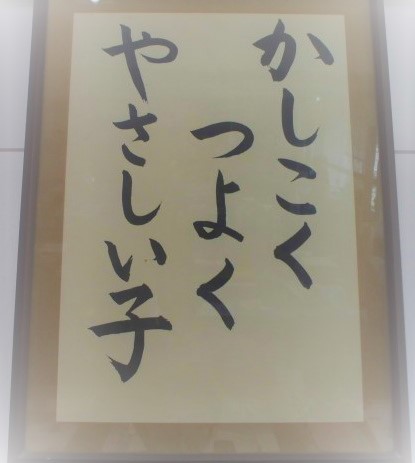 かしこく
つよく
やさしい子